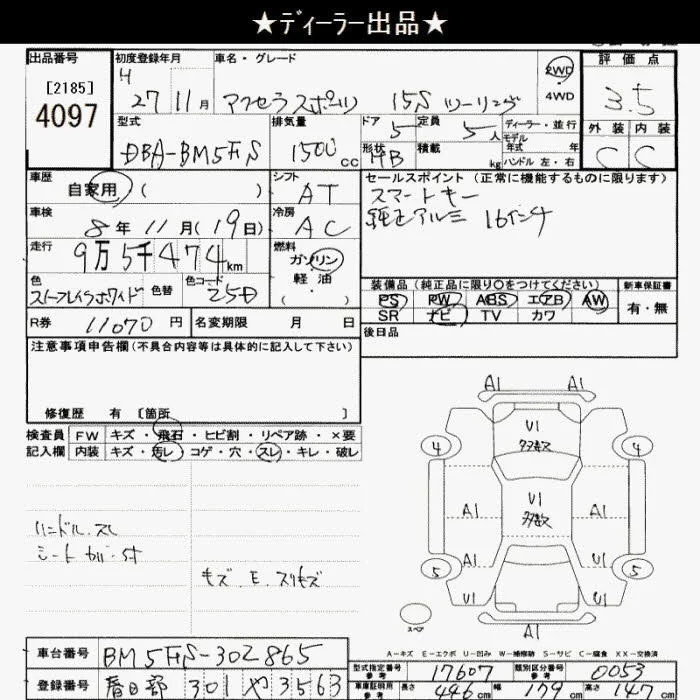 ★ディーラー出品★
出品番号
[2185]
4097
初度登録年月
H
27年11月
車名・グレード
アクセラスポーツ 15S ツーリング
2WD
4WD
評価点
3.5
外装 内装
C C
型式
DBA-BM5FS
排気量
1500cc
ドア
5
定員
5人
形状
HB
積載
kg
ディーラー・並行
モデル
年式 年
ハンドル 左・右
車歴
自家用 ( )
シフト
AT
車検
8年11月(19日)
冷房
AC
走行
9万5千474km
燃料
ガソリン
軽油
( ・ )
色
スノーフレイクホワイト
色替
色コード
25D
セールスポイント (正常に機能するものに限ります)
スマートキー
純正アルミ 16インチ
装備品 (純正品に限り○をつけてください)
PS PW ABS エアB AW
SR ナビ TV カワ
新車保証書
有・無
R券 11070円
名変期限 月 日
後日品
注意事項申告欄(不具合内容等は具体的に記入して下さい)
修復歴 有 [箇所 ]
検査員
記入欄
FW キズ・飛石・ヒビ割・リペア跡・×要
内装 キズ・汚レ・コゲ・穴・スレ・キレ・破レ
ハンドル.スレ
キズ.E.スリキズ
A1 A1
U1
タタキズ
4 4
U1
多数
A1 A1
A1 U1
5 5
U1 U1
A1
スペア
A-キズ E-エクボ U-凹み W-補修跡 S-サビ C-腐食 XX-交換済
車台番号
BM5FS-302865
登録番号
春日部 301 や 3563
型式指定番号
参考
17607
類別区分番号
参考
0053
車庫証明用
参考
長さ 446cm 幅 179cm 高さ 147cm